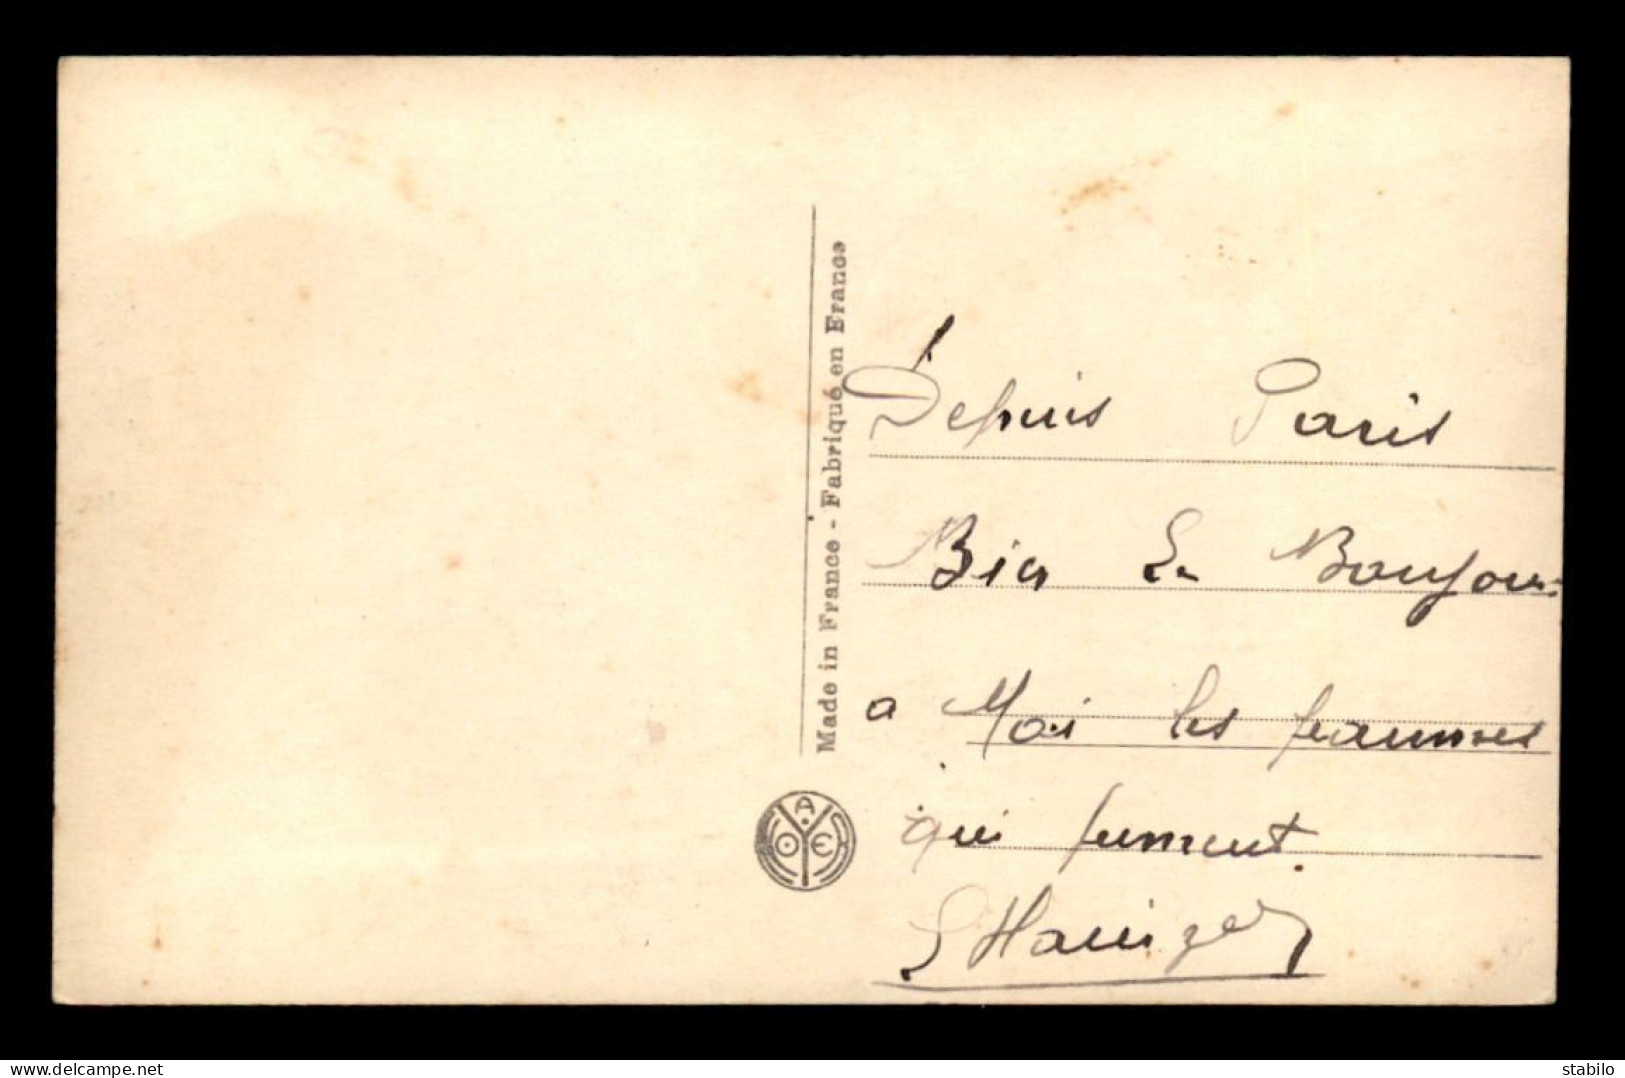 Made in France - Fabriqué en France
A
O E
Depuis Paris
Bien Le Bonjour
a Moi les femmes
qui fument.
www.delcampe.net
stabilo